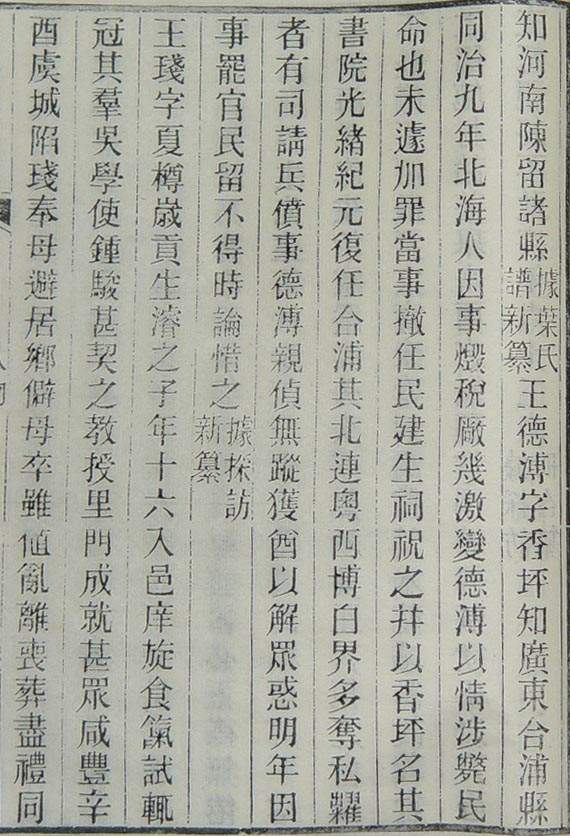 知河南陳留諸縣據葉氏譜新纂王德溥字香坪知廣東合浦縣
同治九年北海人因事燬稅厰幾激變德溥以情涉斃民
命也未遽加罪當事撤任民建生祠祝之幷以香坪名其
書院光緒紀元復任合浦其北連粵西博白界多奪私糶
者有司請兵僨事德溥親偵無蹤獲酋以解眾惑明年因
事罷官民留不得時論惜之據採訪新纂
王琖字夏樽歲貢生濬之子年十六入邑庠旋食餼試輒
冠其羣吳學使鍾駿甚契之教授里門成就甚眾咸豐辛
酉虞城陷琖奉母避居鄉僻母卒雖值亂離喪葬盡禮同